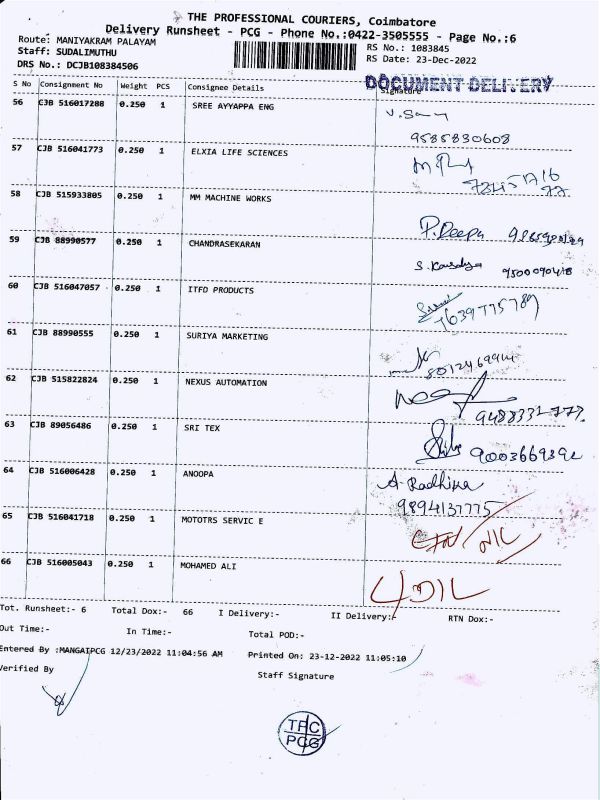 THE PROFESSIONAL COURIERS, Coimbatore
Delivery Runsheet - PCG - Phone No.:0422-3505555 - Page No.:6
Route: MANIYAKRAM PALAYAM
RS No.: 1083845
Staff: SUDALIMUTHU
RS Date: 23-Dec-2022
DRS No.: DCJB108384506
DOCUMENT DELIVERY
S No Consignment No Weight PCS Consignee Details Signature
56 CJB 516017288 0.250 1 SREE AYYAPPA ENG
9585830608
57 CJB 516041773 0.250 1 ELXIA LIFE SCIENCES
58 CJB 515933805 0.250 1 MM MACHINE WORKS
P.Deepa
59 CJB 88990577 0.250 1 CHANDRASEKARAN
60 CJB 516047057 0.250 1 ITFD PRODUCTS
7639775789
61 CJB 88990555 0.250 1 SURIYA MARKETING
62 CJB 515822824 0.250 1 NEXUS AUTOMATION
63 CJB 89056486 0.250 1 SRI TEX
64 CJB 516006428 0.250 1 ANOOPA
A. Radhika
9894137775
65 CJB 516041718 0.250 1 MOTOTRS SERVIC E
66 CJB 516005043 0.250 1 MOHAMED ALI
Tot. Runsheet:- 6 Total Dox:- 66 I Delivery:- II Delivery:- RTN Dox:-
Out Time:- In Time:- Total POD:-
Entered By :MANGAIPCG 12/23/2022 11:04:56 AM Printed On: 23-12-2022 11:05:10
Verified By
Staff Signature
TPC
PCG